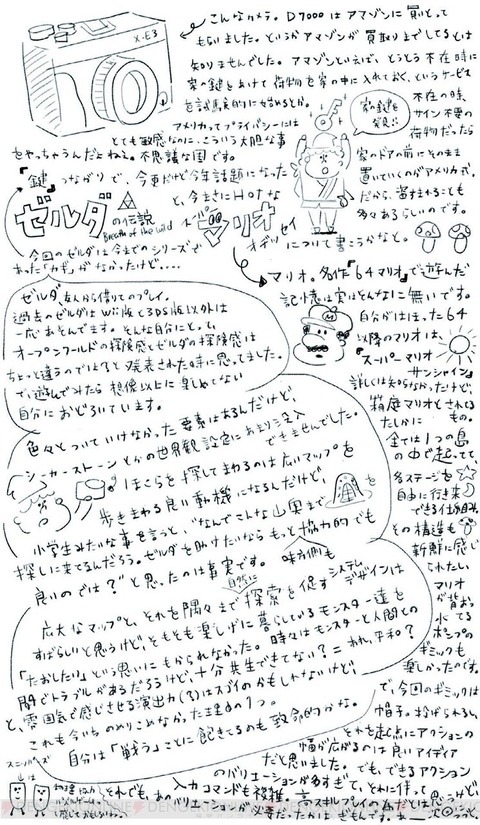 X-E3
こんなカメラ。D7000はアマゾンに買いとって
もらいました。というかアマゾンが買取りまでしてるとは
知りませんでした。アマゾンといえば、とうとう不在時に
家の鍵をあけて荷物を家の中に入れておく、というサービス
を試験的に始めるとか。
アメリカってプライバシーには
とても敏感なのに、こういう大胆な事
をやっちゃうんだよねえ。不思議な国です。
家の鍵を
不在の時、
サイン不要の
荷物だったら
家のドアの前にそのまま
置いていくのがアメリカ式。
だから、盗まれることも
多々あるらしいのです。
『鍵』つながりで、今更だけど今年話題になった
ゼルダの伝説
Breath of the Wild
と、今まさにHotな
マリオ
オデッセイ
について書こうかなと。
今回のゼルダは今までのシリーズで
あった「カギ」がなかったけど....
ゼルダ、友人から借りてのプレイ。
過去のゼルダはWii版と3DS版以外は
一応あそんでます。そんな自分にとって、
オープンフィールドの探険感とゼルダの探険感は
ちょっと違うのでは?と発表された時に思ってました。
で、遊んでみたら想像以上に楽しめてない
自分におどろいています。
マリオ。名作「64マリオ」で遊んだ
記憶は実はそんなに無いです。
自分がはまった64
以降のマリオは、
『スーパーマリオ
サンシャイン』
詳しくは知らなかったけど、
箱庭マリオとされてる
たしかに もの。
全ては1つの島
の中で起って、
各ステージを
自由に行き来
できる仕組み。
その構造も
新鮮に感じ
られたし、
マリオ
が背お
ってる
ポンプの
ギミックも
楽しかったのです。
で、今回のギミックは
帽子。投げられるし、
それを起点にアクションの
幅が広がるのは良いアイディア
だと思いました。でも、できるアクション
のバリエーションが多すぎて、それに伴って
入力コマンドも複雑。高スキルプレイの為だとは思うけど、
それでも、あのバリエーションが必要だったかはぎもんです。
色々とついていけなかった要素はあるんだけど、
シーカーストーンとかの世界観設定にあまり没入
できませんでした。
ほこらを探してまわるのは広いマップを
歩きまわる良い動機になるんだけど、
小学生みたいな事を言うと、"なんでこんな山奥まで を
探しに来てるんだろう。ゼルダを助けたいならもっと協力的でも
良いのでは?"と思ったのは事実です。
味方側も
広大なマップと、それを隅々まで自然に探索を促すシステムデザインは
すばらしいと思うけど、そもそも楽しげに暮らしているモンスター達を
「たおしたい」という思いにもかられなかった。時々はモンスターと人間との
間でトラブルがあるだろうけど、十分共生できてない?=あれ、平和?
と、雰囲気で感じさせる演出力(?)はスゴイのかもしれないけど、
これも今いちのめりこめなかった理由の1つ。
自分は「戦う」ことに飽きてるのも致命的かな。